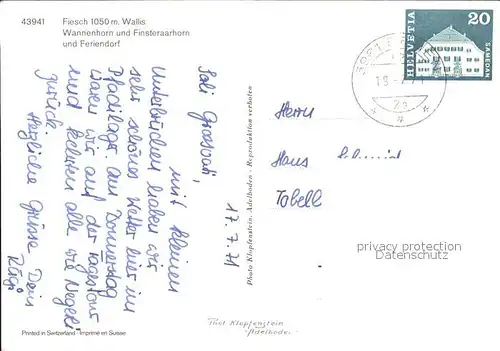 43941 Fiesch 1050 m. Wallis
Wannenhorn und Finsteraarhorn
und Feriendorf
HELVETIA 20
SAMEDAN
Soli Grospati,
mit kleinen
Unterbrüchen haben wir
sehr schönes Wetter hier im
Pfadilager. Am Donnerstag
waren wir auf der Tagestour
und kehrten alle wie Neger
zurück.
Herzliche Grüsse Dein
17.7.71
Photo Klopfenstein, Adelboden - Reproduktion verboten
Herrn
Hans
Tobell
privacy protection
Datenschutz
Printed in Switzerland - Imprimé en Suisse
Phot Klopfenstein
Adelboden